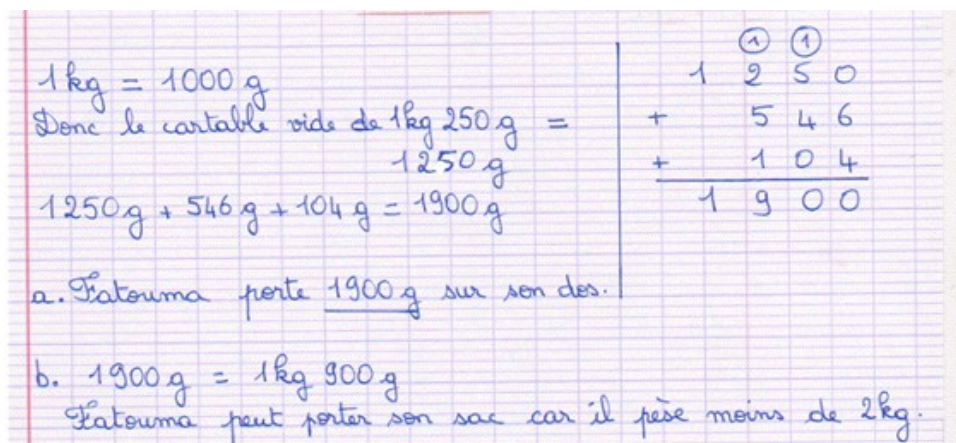 1kg = 1000 g
Donc le cartable vide de 1kg 250 g =
1250 g
1250g + 546 g + 104 g = 1900g
a. Fatouma porte 1900 g sur son dos.
b. 1900 g = 1kg 900 g
Fatouma peut porter son sac car il pèse moins de 2kg.
1 1
1 2 5 0
+ 5 4 6
+ 1 0 4
1 9 0 0